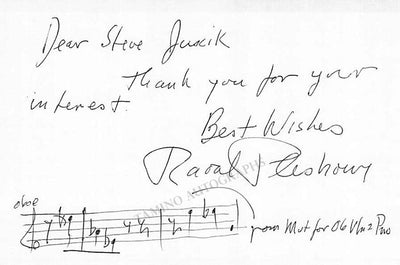 Dear Steve Juscik
Thank you for your
interest.
Best Wishes
Raoul Pleskow
TAMINO AUTOGRAPHS
oboe
from Mvt for Ob Vln 2 Pno